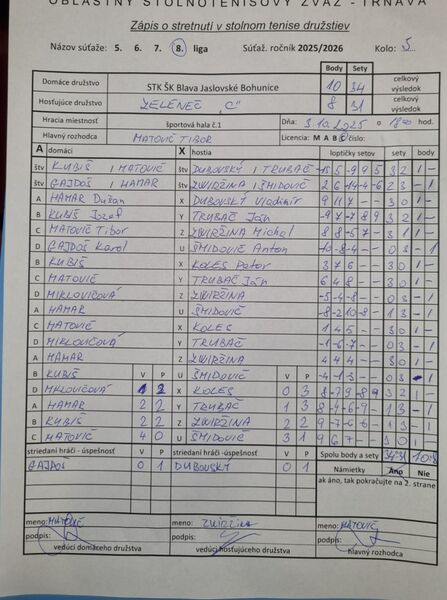 OBLASTNÝ STOLNOTENISOVÝ ZVÄZ - TRNAVA
Zápis o stretnutí v stolnom tenise družstiev
Názov súťaže: 5. 6. 7. 8. liga Súťaž. ročník 2025/2026 Kolo: 5
Body Sety
Domáce družstvo STK ŠK Blava Jaslovské Bohunice 10 34 celkový výsledok
Hosťujúce družstvo ZELENEČ "C" 8 31 celkový výsledok
Hracia miestnosť športová hala č.1 Dňa: 3.10.2025 o 18:00 hod
Hlavný rozhodca MATOVIČ TIBOR Licencia: M A B C číslo:
A domáci X hostia loptičky setov sety body
štv KUBIŠ / MATOVIČ DUBOVSKÝ / TRUBAČ 3 2 1 -
štv GAJDOŠ / HAMAR ZWIRŽINA / ŠMIDOVIČ 2 3 - 1
A HAMAR Dušan X DUBOVSKÝ Vladimír 9 11 7 - - 3 0 1 -
B KUBIŠ Jozef Y TRUBAČ Ján -9 7 -7 8 9 3 2 1 -
C MATOVIČ Tibor Z ZWIRŽINA Michel 8 8 -5 7 - 3 1 1 -
D GAJDOŠ Karol U ŠMIDOVIČ Anton -10 -8 -4 - - 0 3 - 1
B KUBIŠ X KOLES Peter 3 7 6 - - 3 0 1 -
C MATOVIČ Y TRUBAČ Ján 6 4 8 - - 3 0 1 -
D MIKLOVIČOVÁ Z ZWIRŽINA -5 -4 -8 - - 0 3 - 1
A HAMAR U ŠMIDOVIČ -8 -2 10 -8 - 1 3 - 1
C MATOVIČ X KOLES 1 4 5 - - 3 0 1 -
D MIKLOVIČOVÁ Y TRUBAČ -1 -6 -7 - - 0 3 - 1
A HAMAR Z ZWIRŽINA 4 4 4 - - 3 0 1 -
B KUBIŠ V P U ŠMIDOVIČ V P -4 -1 -3 - - 0 3 - 1
D MIKLOVIČOVÁ 1 2 X KOLES 0 3 3 2 1 -
A HAMAR 2 2 Y TRUBAČ 1 3 1 3 - 1
B KUBIŠ 2 2 Z ZWIRŽINA 2 2 - 1
C MATOVIČ 4 0 U ŠMIDOVIČ 3 1 9 6 7 - - 3 0 1 -
striedaní hráči - úspešnosť V P striedaní hráči - úspešnosť V P Spolu body a sety 34:31 10:8
GAJDOŠ 0 1 DUBOVSKÝ 0 1 Námietky Áno Nie
ak áno, tak pokračujte na 2. strane
meno: MATOVIČ meno: ZWIRŽINA meno: MATOVIČ
podpis: podpis: podpis:
vedúci domáceho družstva vedúci hosťujúceho družstva hlavný rozhodca